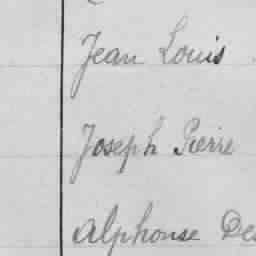 Jean Louis
Joseph Pierre
Alphonse